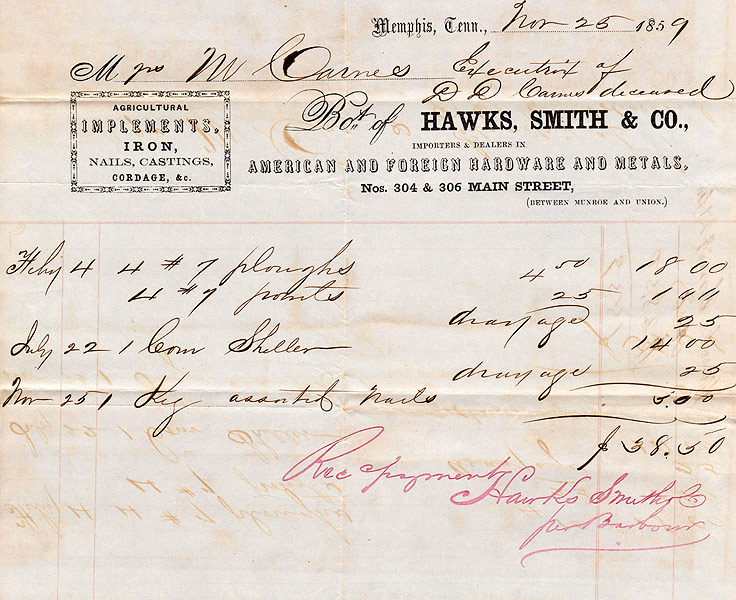 Memphis, Tenn., Nov 25 1859
Mrs M Carnes Executrix of
D D Carnes deceased
Bot. of HAWKS, SMITH & CO.,
IMPORTERS & DEALERS IN
AMERICAN AND FOREIGN HARDWARE AND METALS,
Nos. 304 & 306 MAIN STREET,
(BETWEEN MUNROE AND UNION.)
AGRICULTURAL
IMPLEMENTS,
IRON,
NAILS, CASTINGS,
CORDAGE, &c.
Feby 4 4 #7 ploughs 4 50 18 00
4 #7 points 25 1 "
drayage 25
July 22 1 Corn Sheller 14 00
drayage 25
Nov 25 1 Keg assorted nails 5.00
$ 38.50
Rec payment
Hawks Smith & Co
per Barbour